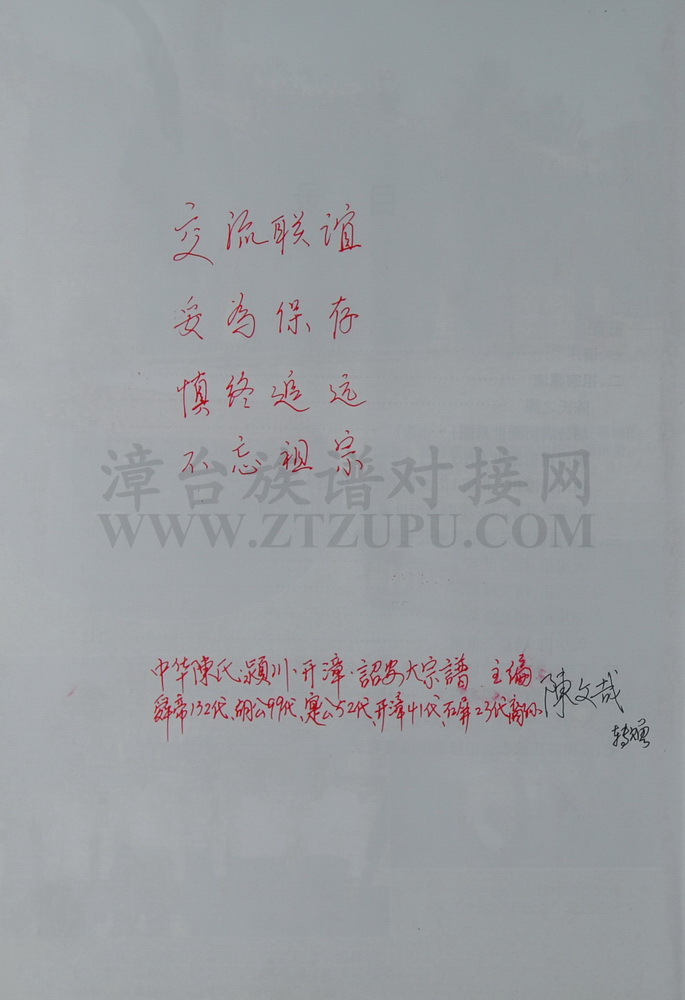 交流联谊
妥为保存
慎终追远
不忘祖宗
漳台族谱对接网
WWW.ZTZUPU.COM
中华陳氏·颍川·开漳·詔安大宗譜 主编 陳文哉
舜帝132代、胡公99代、寔公52代、开漳41代、石屏23代裔孙
转赠